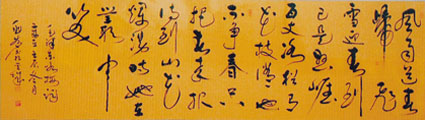 風雨送春
歸飛
雪迎春到
已是懸崖
百丈冰猶有
花枝俏也
不爭春只
把春來報
待到山花
爛漫時她在
叢中
笑
毛澤東詠梅詞